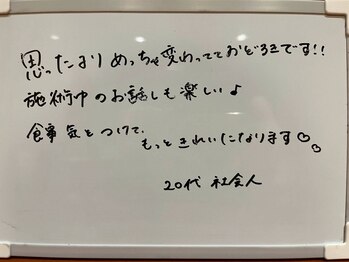 思ったよりめっちゃ変わってておどろきです!!
施術中のお話しも楽しい♪
食事気をつけて、
もっときれいになります♡♡
20代 社会人